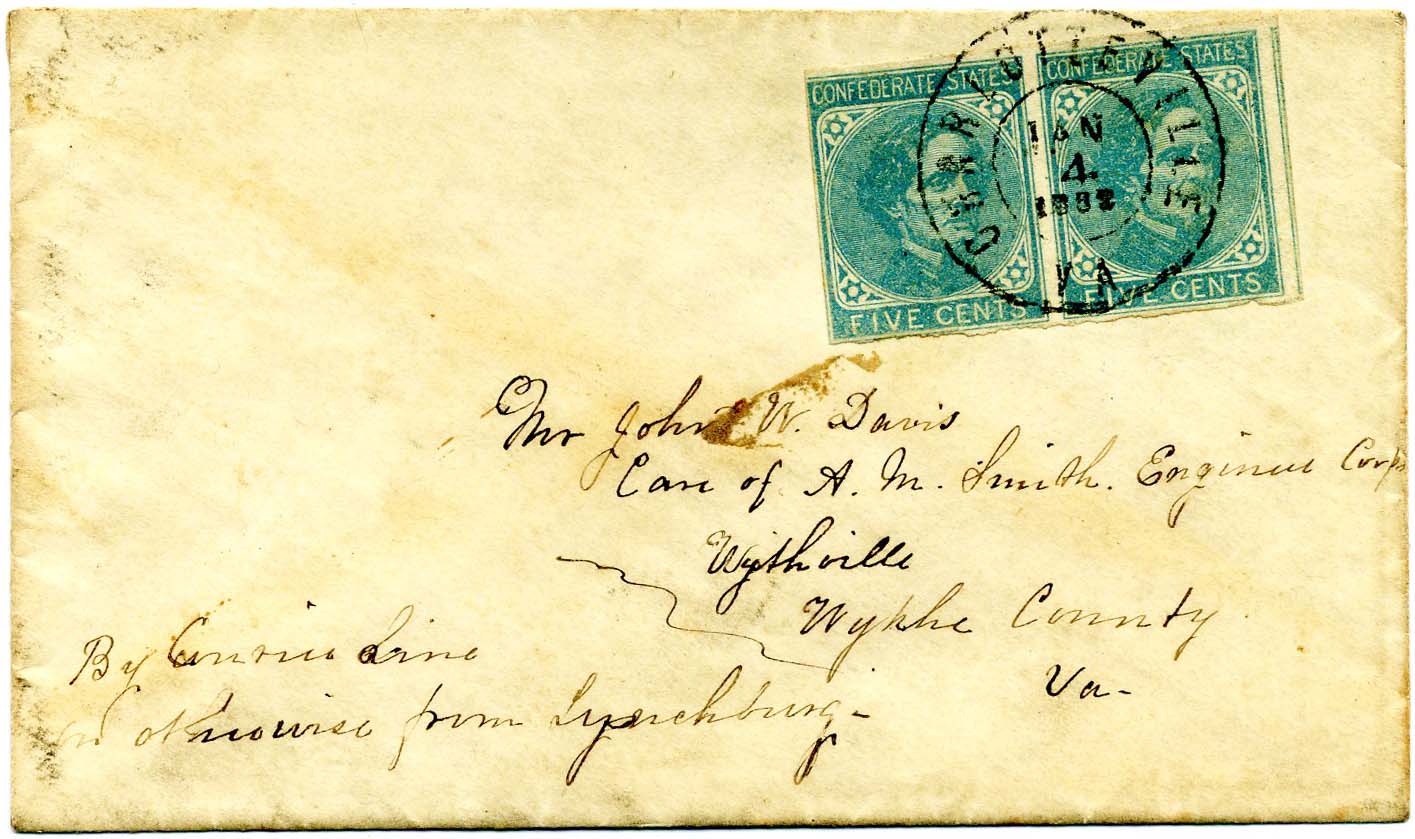 CONFEDERATE STATES CONFEDERATE STATES
CHARLOTTESVILLE
JAN
4
1862
VA
FIVE CENTS FIVE CENTS
Mr John W. Davis
Care of A. M. Smith. Engineer Corps
Wythville
Wythe County
Va-
By Line
or otherwise from Lynchburg-